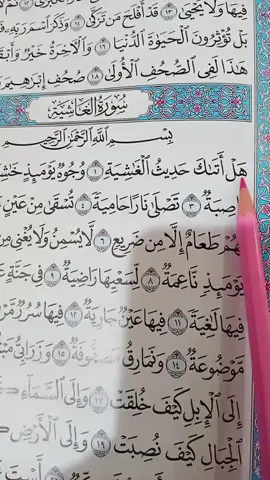 فِيهَا وَلَا يَحْيَىٰ ١٣ قَدْ أَفْلَحَ مَن تَزَكَّىٰ ١٤ وَذَكَرَ ٱسْمَ رَبِّهِۦ فَ
بَلْ تُؤْثِرُونَ ٱلْحَيَوٰةَ ٱلدُّنْيَا ١٦ وَٱلْءَاخِرَةُ خَيْرٌ وَأَبْقَ
هَٰذَا لَفِى ٱلصُّحُفِ ٱلْأُولَىٰ ١٨ صُحُفِ إِبْرَٰهِيمَ
سُورَةُ الغَاشِيَةِ
بِسْمِ ٱللَّهِ ٱلرَّحْمَٰنِ ٱلرَّحِيمِ
هَلْ أَتَىٰكَ حَدِيثُ ٱلْغَٰشِيَةِ ١ وُجُوهٌ يَوْمَئِذٍ خَٰشِ
اصِبَةٌ ٣ تَصْلَىٰ نَارًا حَامِيَةً ٤ تُسْقَىٰ مِنْ عَيْنٍ
لَهُمْ طَعَامٌ إِلَّا مِن ضَرِيعٍ ٦ لَّا يُسْمِنُ وَلَا يُغْنِى مِن
يَوْمَئِذٍ نَّاعِمَةٌ ٨ لِّسَعْيِهَا رَاضِيَةٌ ٩ فِى جَنَّةٍ عَ
فِيهَا لَٰغِيَةً ١١ فِيهَا عَيْنٌ جَارِيَةٌ ١٢ فِيهَا سُرُرٌ مَّرْ
مَّوْضُوعَةٌ ١٤ وَنَمَارِقُ مَصْفُوفَةٌ ١٥ وَزَرَابِىُّ مَبْثُ
إِلَى ٱلْإِبِلِ كَيْفَ خُلِقَتْ ١٧ وَإِلَى ٱلسَّمَآءِ كَ
ٱلْجِبَالِ كَيْفَ نُصِبَتْ ١٩ وَإِلَى ٱلْأَرْضِ كَ